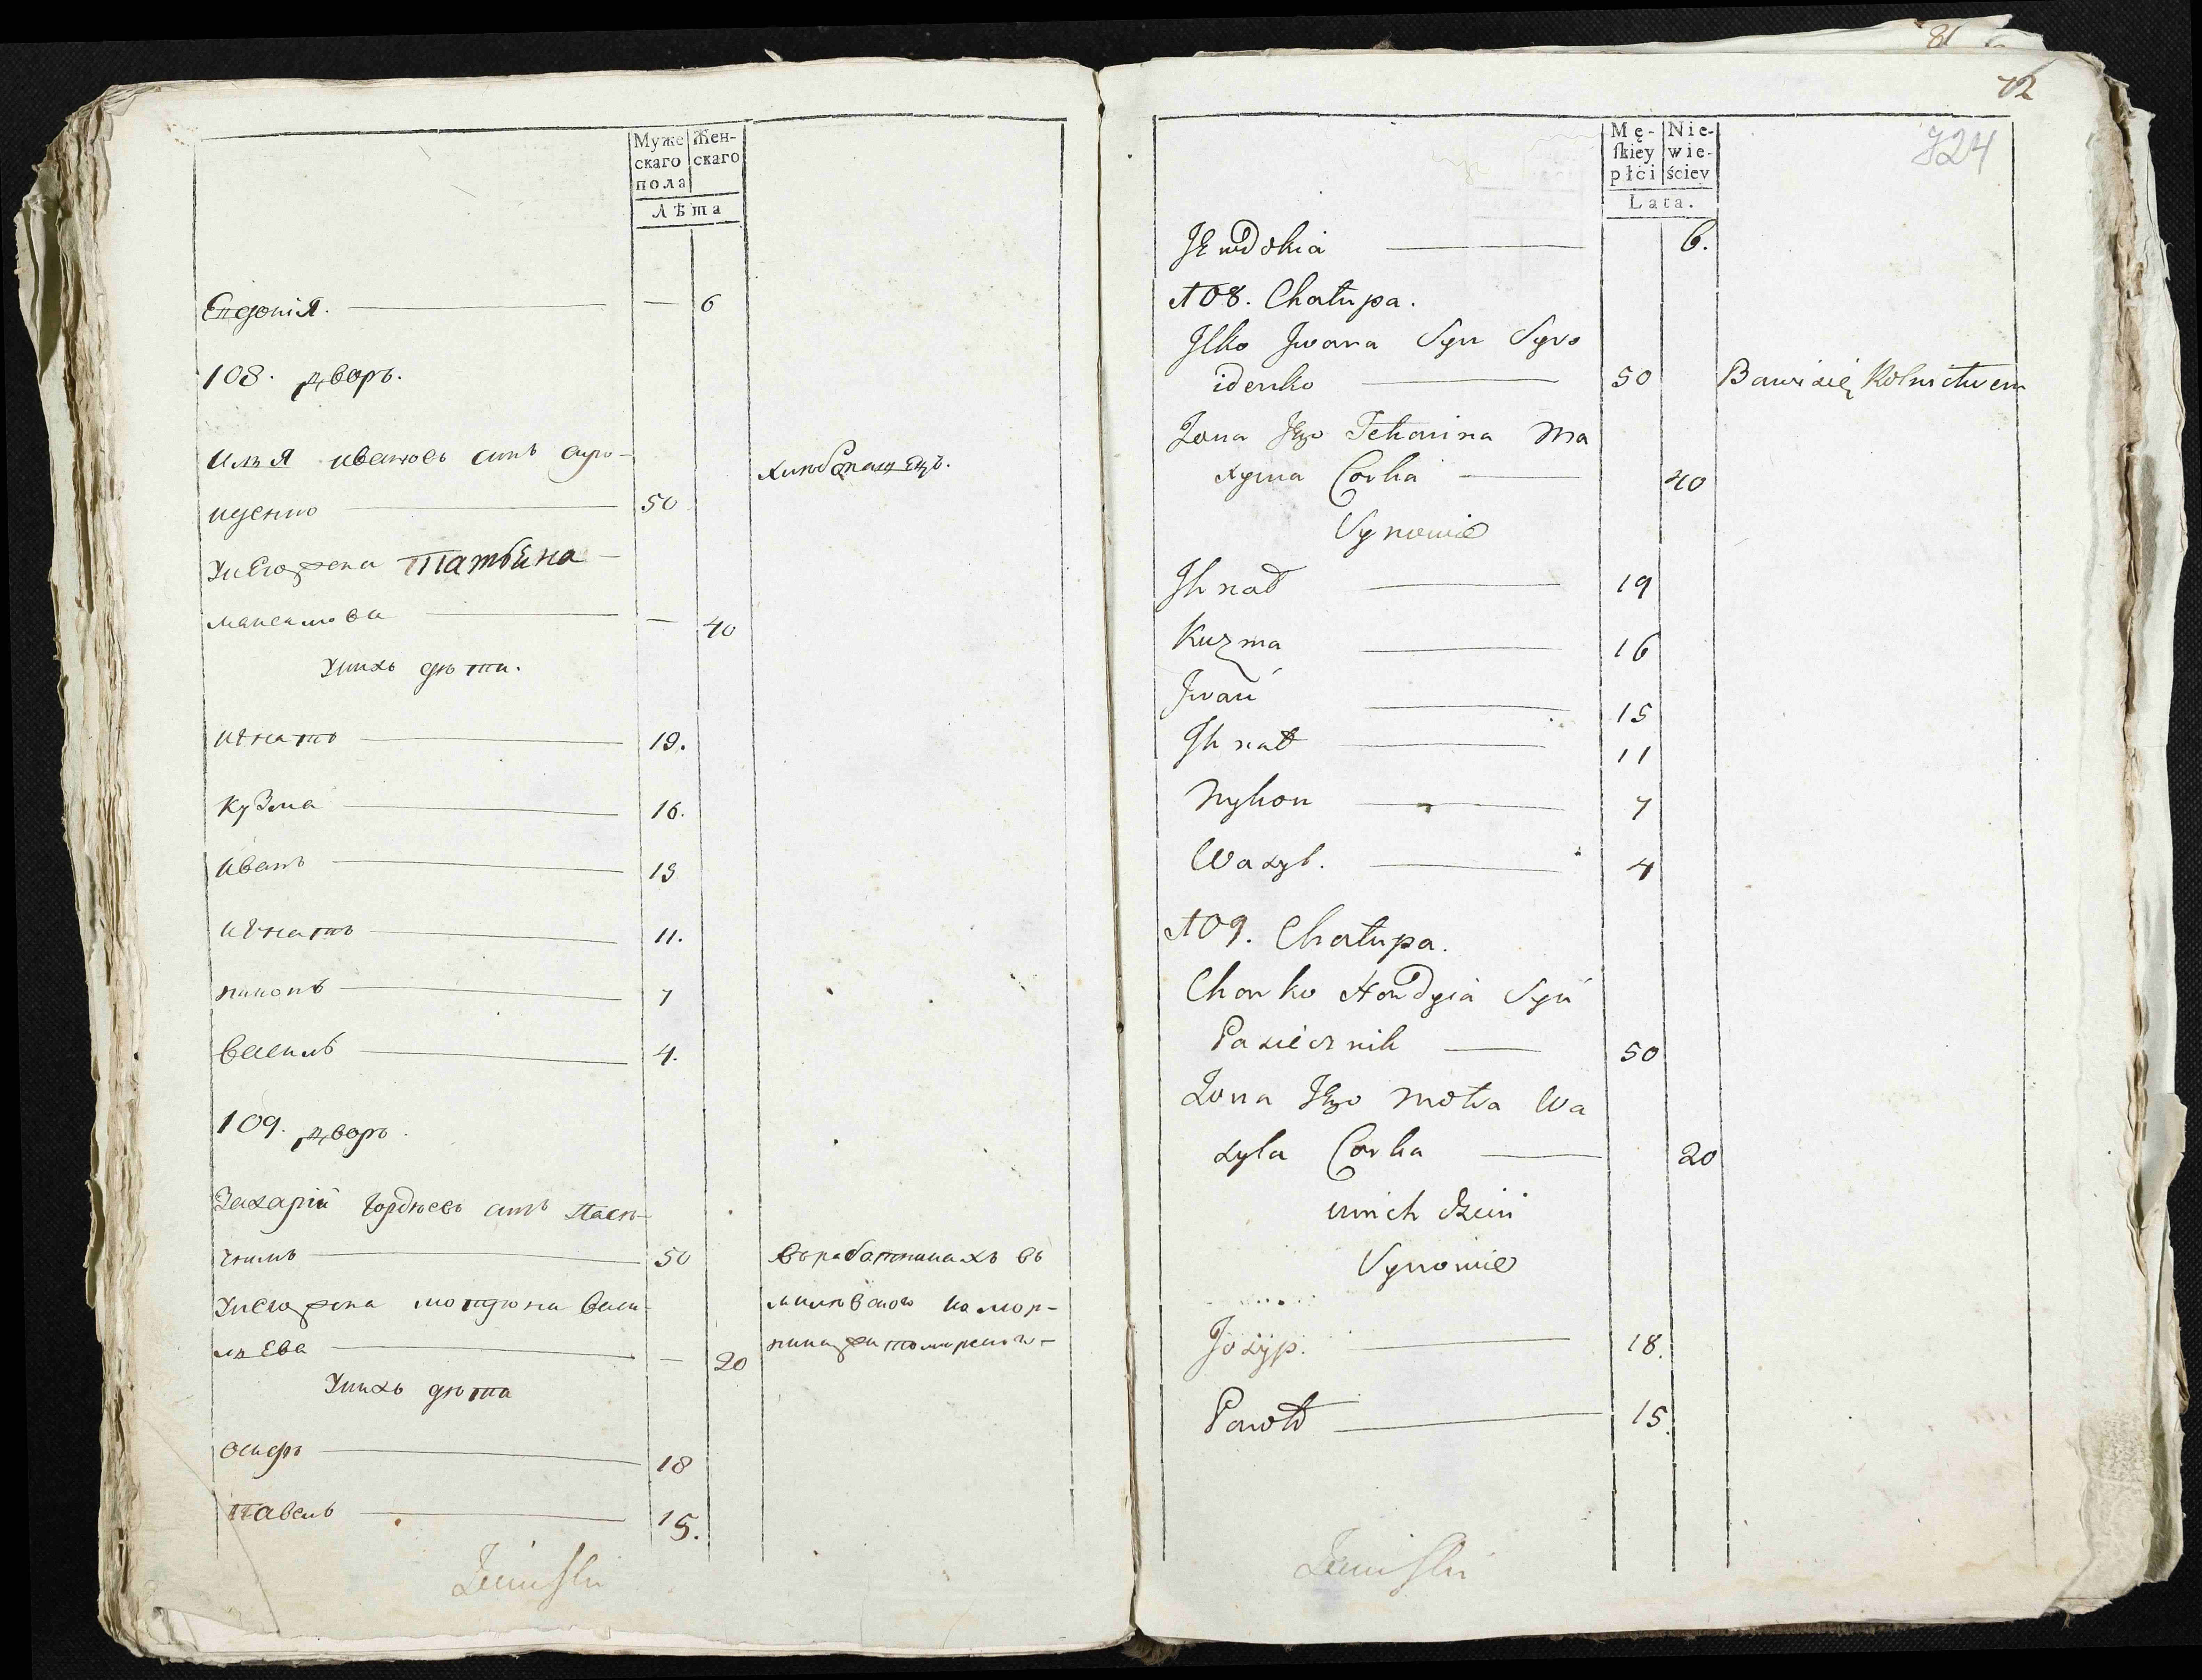 Муже
скаго
пола
Жен-
скаго
Лѣта
Евдокія. — 6
108. дворъ.
Илья Ивановъ сынъ Сиро-
иденко 50 хлѣбопашецъ.
У него жена Татьяна
Максимова — 40
У нихъ дѣти.
Игнатъ 19.
Кузма 16.
Иванъ 15
Игнатъ 11.
Никонъ 7
Василь 4.
109. дворъ.
Захарій Гордѣевъ сынъ Пасѣ-
чникъ 50 въ работникахъ въ
У него жена Васи-
льева — 20
У нихъ дѣти
Осифъ 18
Павелъ 15.
81
72
724
Mę-
ſkiey
płci
Nie-
wie-
ściey
Lata.
Jewdokia 6.
108. Chałupa.
Jlko Jwana Syn Syro
idenko 50 Bawi się Rolnictwem
Zona Jego Tetianna Ma
xyma Corka 40
Synowie
Jhnat 19
Kuzma 16
Jwan 15
Jhnat 11
Nykon 7
Wasyl. 4
109. Chałupa.
Chonko Hordyia Syn
Pasiecznik 50
Zona Jego Motra Wa
syla Corka 20
u nich dzieci
Synowie
Josyp. 18.
Pawło 15.